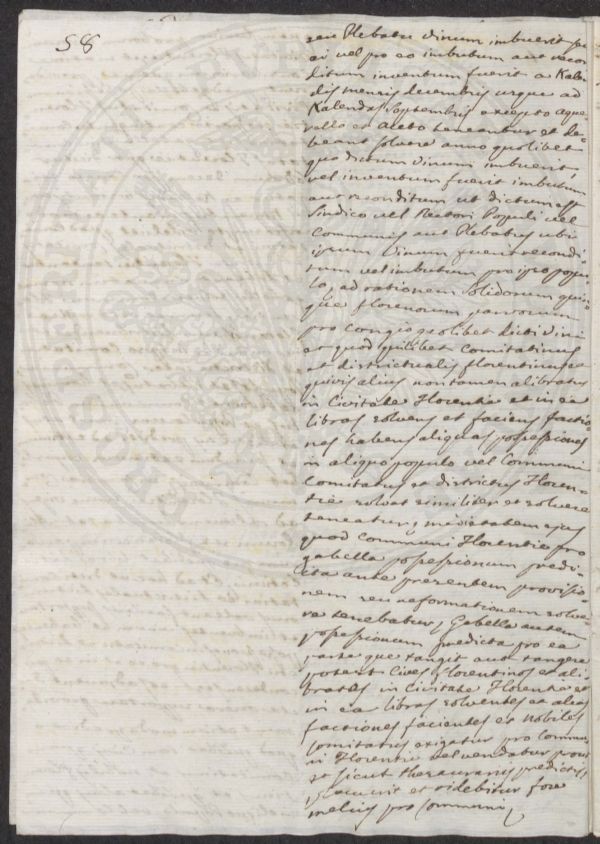 58
seu Plebatu vinum imbuerit
ei vel pro eo imbutum aut recon
ditum inventum fuerit a Kalen
dis mensis decembris usque ad
Kalendas Septembris excepto aque
rello et Aceto teneantur et de
beant solvere anno quolibet
quo dictum vinum imbuerit,
vel inventum fuerit imbutum
aut reconditum ut dictum est
Sindico vel Rectori Populi vel
Communis aut Plebatus ubi
ipsum vinum fuerit recondi
tum vel imbutum pro ipso popu
lo, ad rationem solidorum quin
que florenorum parvorum
pro congio quolibet dicti vini
et quod quilibet Comitatinus
et districtualis florentinus et
quivis alius non tamen alibratus
in Civitate Florentie et in ea
libras solvens et faciens factio
nes habens aliquas possessiones
in aliquo populo vel Communi
Comitatus et districtus Floren
tie solvat similiter et solvere
teneatur, medietatem ejus
quod Communi Florentie pro
gabella possessionum predi
cta ante presentem provisio
nem seu reformationem solve
re tenebatur, Gabella autem
possessionum predicta pro ea
parte que tangit aut tangere
potest Cives Florentinos et ali
bratos in Civitate Florentie et
in ea libras solventes et alias
factiones facientes et nobiles
Comitatus exigatur pro Commu
ni Florentie vel vendatur prout
et sicut thesaurariis predictis
placuerit et videbitur fore
melius pro Communi,